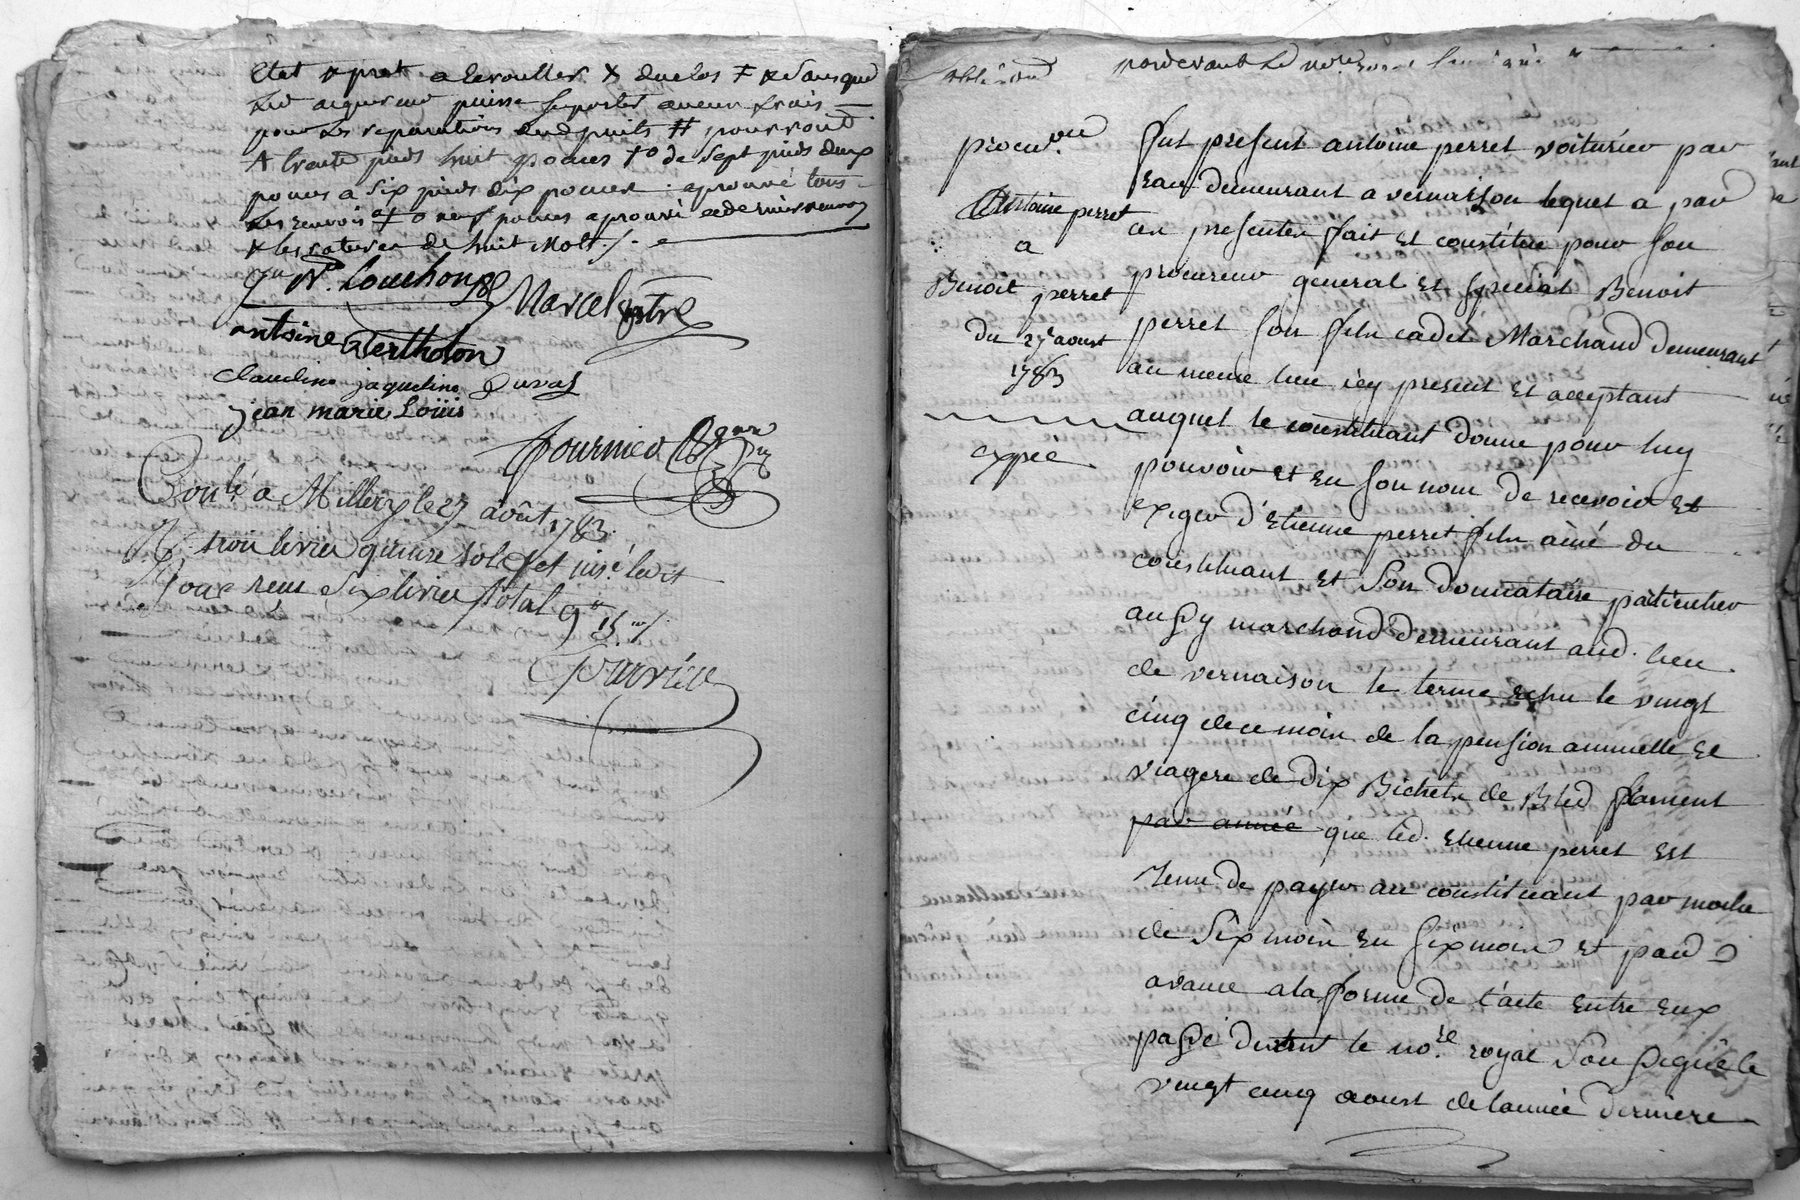 Etat & pret a Ecrouller X duclos ‡ & sans que
Les acquereur puisse suporter aucun frais
pour les reparations dud. puits # pourront
A trente pieds huit pouces +o de sept pieds deux
pouces a six pieds dix pouces. aprouvé tous
Les renvois et neuf pouces aprouvé ce dernier renvoy
& les ratures de huit Mots ./.
Louchon
Marcel
antoine Bertholon
claudine jaqueline Duval
jean marie Loüis
fournier
Conlé a Millery le 27 août 1783
R. trois livres quinze sols et insé. led. it
Pour reux Six livres total 9 lt 15 s /.
pardevant Le no.re
procu.on
Antoine perret
a
Benoit perret
du 27 aoust
1783
expée
fut present antoine perret voiturier par
Eau demeurant a vernaison lequel a par
ces presentes fait et constitué pour son
procureur general et special Benoit
perret son fils cadet Marchand demeurant
au meme lieu icy present et acceptant
auquel le constituant donne pour luy
pouvoir et en son nom de recevoir et
Exiger d'Etienne perret fils ainé du
constituant et son donnataire particulier
aussy marchand demeurant aud. lieu
de vernaison le terme echu le vingt
cinq de ce mois de la pension annuelle et
viagere de dix Bichets de Bled froment
par année que led. Etienne perret est
Tenu de payer au constituant par moitie
de six mois en six mois et par d
avance a la forme de l'acte entre eux
passé devant le no.re royal sousigné le
vingt cinq aoust de l'année derniere